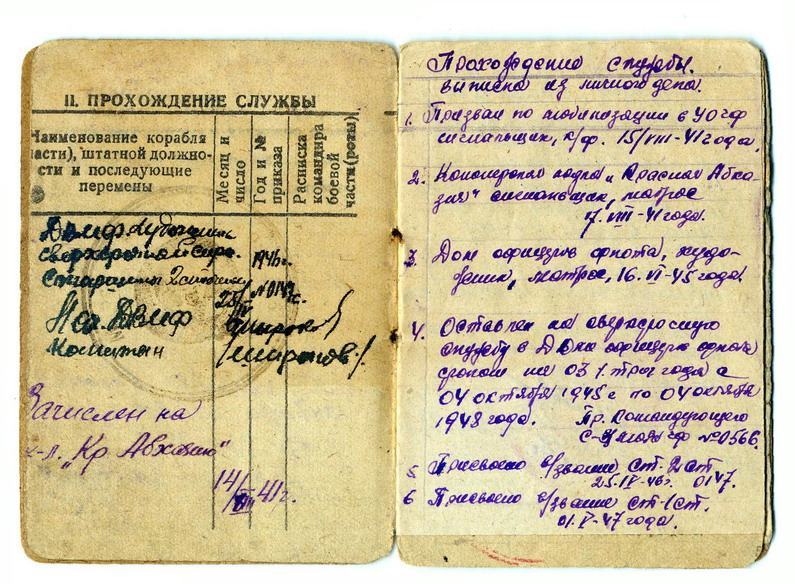 II. ПРОХОЖДЕНИЕ СЛУЖБЫ
Наименование корабля
части), штатной должно-
сти и последующие
перемены
Месяц и
число
Год и №
приказа
Расписка
командира
боевой
части(роты)
Художник
сверхсрочной
Старшина 2 статьи
1946 г.
25/IV
№ 0147
Нач.
Капитан
/Широков/
Зачислен на
к-л. „Кр Абхазию"
14/VIII
41 г.
Прохождение службы.
выписка из личного дела.
1. Призван по мобилизации в
сигнальщик, к/ф. 15/VIII-41 года.
2. Канонерская лодка „Красная Абха-
зия" сигнальщик, матрос
17. VIII-41 года.
3. Дом офицеров флота, худо-
жник, матрос, 16. VI-45 года.
4. Оставлен на сверхсрочную
службу в Доме офицеров флота
сроком на 03/три года с
04 октября 1945 г по 04 октября
1948 года. Пр. Командующего
№ 0566.
5 Присвоено в/звание Ст-2 Ст
25-IV-46 г. 0147.
6 Присвоено в/звание Ст-1 Ст.
01. V-47 года.